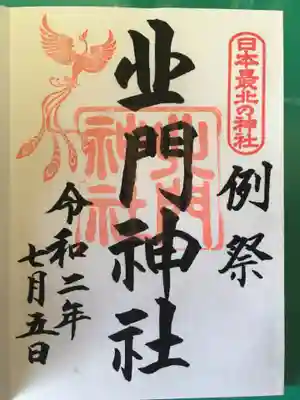 日本最北の神社
例祭
北門神社
北門
神社
令和二年
七月五日